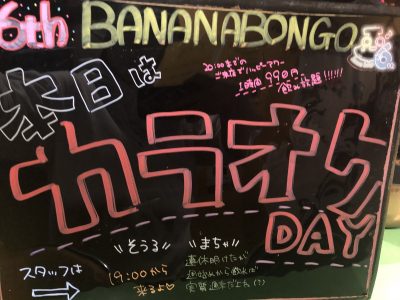 6th BANANABONGO
本日は
20:00までの
ご来店でハッピーアワー
1時間 990円
飲み放題!!!!!!
カラオケ
DAY
スタッフは
"そうる"
19:00から
来るよ♡
"まちゃ"
連休明けたが
週始めから飲めば
実質週末だよね(?)